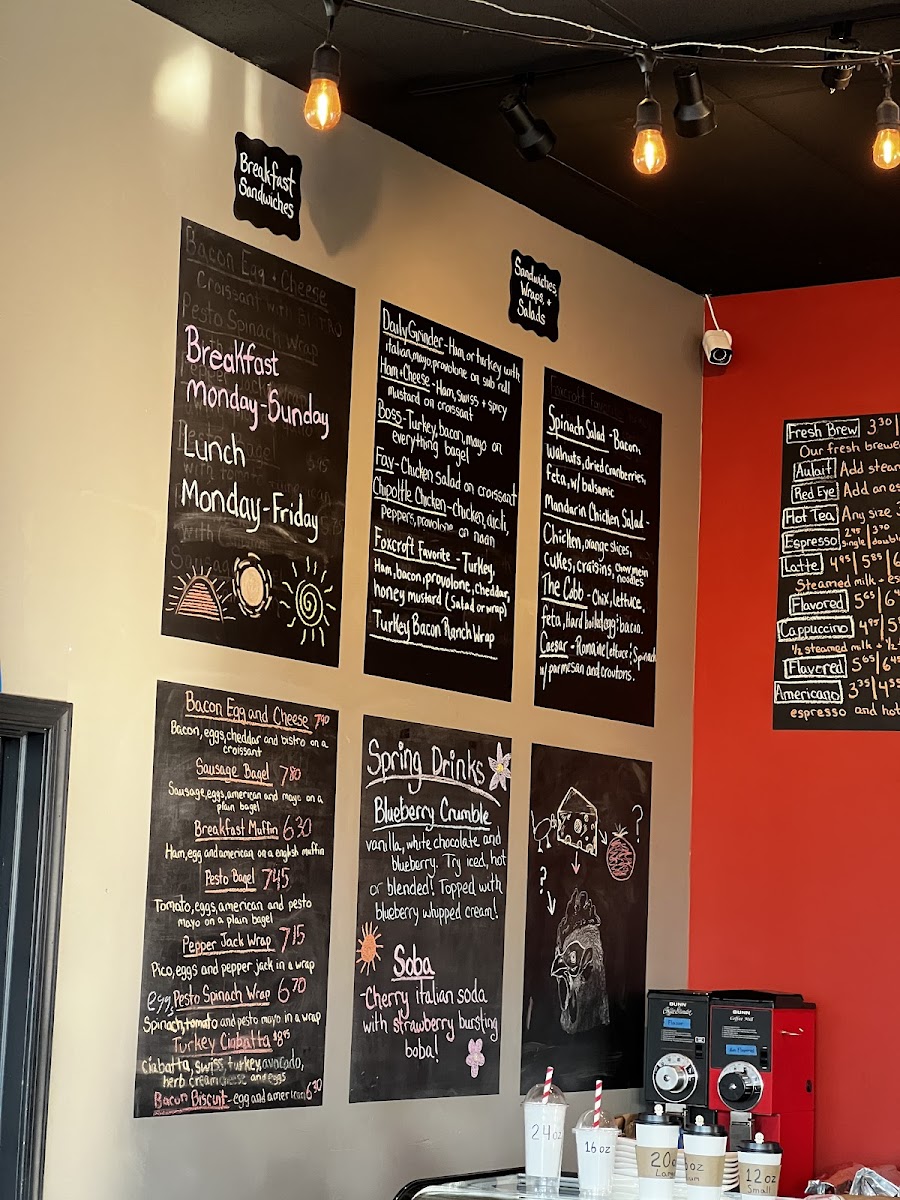 Breakfast
Sandwiches
Sandwiches,
Wraps, +
Salads
Bacon Egg + Cheese
Croissant with
Pesto Spinach Wrap
Breakfast
Monday-Sunday
Lunch
Monday-Friday
Daily Grinder - Ham or turkey with
italian, mayo, provolone on sub roll
Ham + Cheese - Ham, swiss + spicy
mustard on croissant
Boss - Turkey, bacon, mayo on
everything bagel
Fav - Chicken salad on croissant
Chipotle Chicken - chicken, aioli,
peppers, provolone on naan
Foxcroft Favorite - Turkey,
Ham, bacon, provolone, cheddar,
honey mustard (salad or wrap)
Turkey Bacon Ranch Wrap
Foxcroft Favorite
Spinach Salad - Bacon,
walnuts, dried cranberries,
feta, w/ balsamic
Mandarin Chicken Salad -
Chicken, orange slices,
cukes, craisins, chow mein
noodles
The Cobb - Chix, lettuce,
feta, hard boiled egg; bacon.
Caesar - Romaine lettuce; Spinach
w/ parmesan and croutons.
Fresh Brew 3.30
Our fresh brewe
Aulait Add stea
Red Eye Add an es
Hot Tea Any size
Espresso 2.45 single | 3.70 double
Latte 4.95 | 5.85 | 6
Steamed milk + es
Flavored 5.65 | 6.4
Cappuccino 4.95 | 5.8
1/2 steamed milk + 1/2
Flavored 5.65 | 6.45
Americano 3.35 | 4.55
espresso and hot
Bacon Egg and Cheese 7.90
Bacon, eggs, cheddar and bistro on a
croissant
Sausage Bagel 7.80
Sausage, eggs, american and mayo on a
plain bagel
Breakfast Muffin 6.30
Ham, egg and american on a english muffin
Pesto Bagel 7.45
Tomato, eggs, american and pesto
mayo on a plain bagel
Pepper Jack Wrap 7.15
Pico, eggs and pepper jack in a wrap
Pesto Spinach Wrap 6.70
egg, Spinach, tomato and pesto mayo in a wrap
Turkey Ciabatta $8.95
ciabatta, swiss, turkey, avocado,
herb cream cheese and eggs
Bacon Biscuit - egg and american 6.30
Spring Drinks
Blueberry Crumble
vanilla, white chocolate and
blueberry. Try iced, hot
or blended! Topped with
blueberry whupped cream!
Soba
-Cherry italian soda
with strawberry bursting
boba!
?
?
BUNN
BUNN
Coffee Mill
24 oz
16 oz
20
oz
12 oz
Small